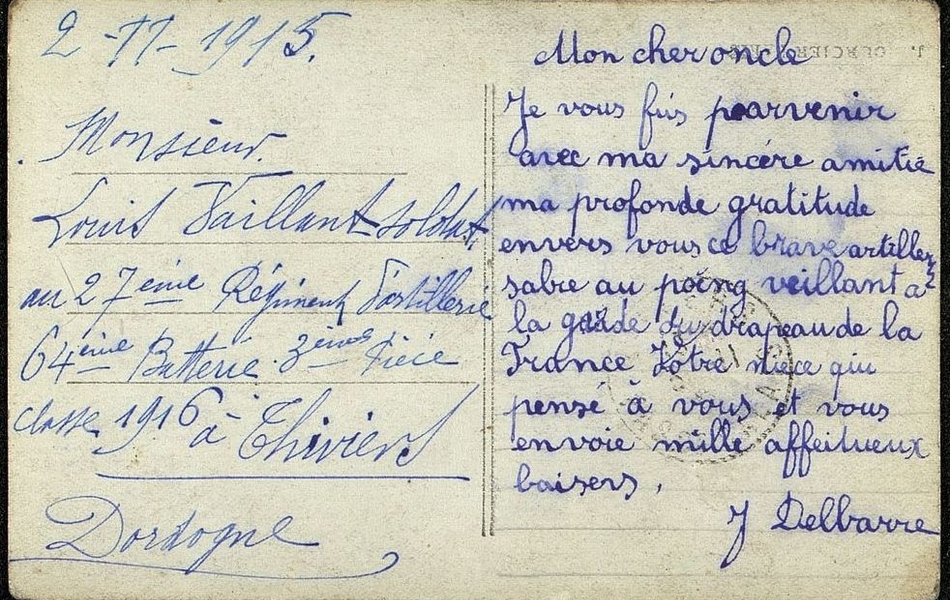 2-11-1915.
Monsieur.
Louis Vaillant soldat,
au 27ème Régiment d'artillerie
64ème Batterie 3ème Pièce
classe 1916 à Thiviers
Dordogne
Mon cher oncle
Je vous fais parvenir
avec ma sincére amitié
ma profonde gratitude
envers vous ce brave artilleur
sabre au poing veillant a
la garde du drapeau de la
France Votre niece qui
pensé à vous et vous
envoie mille affeitueux
baisers,
J Delbarre